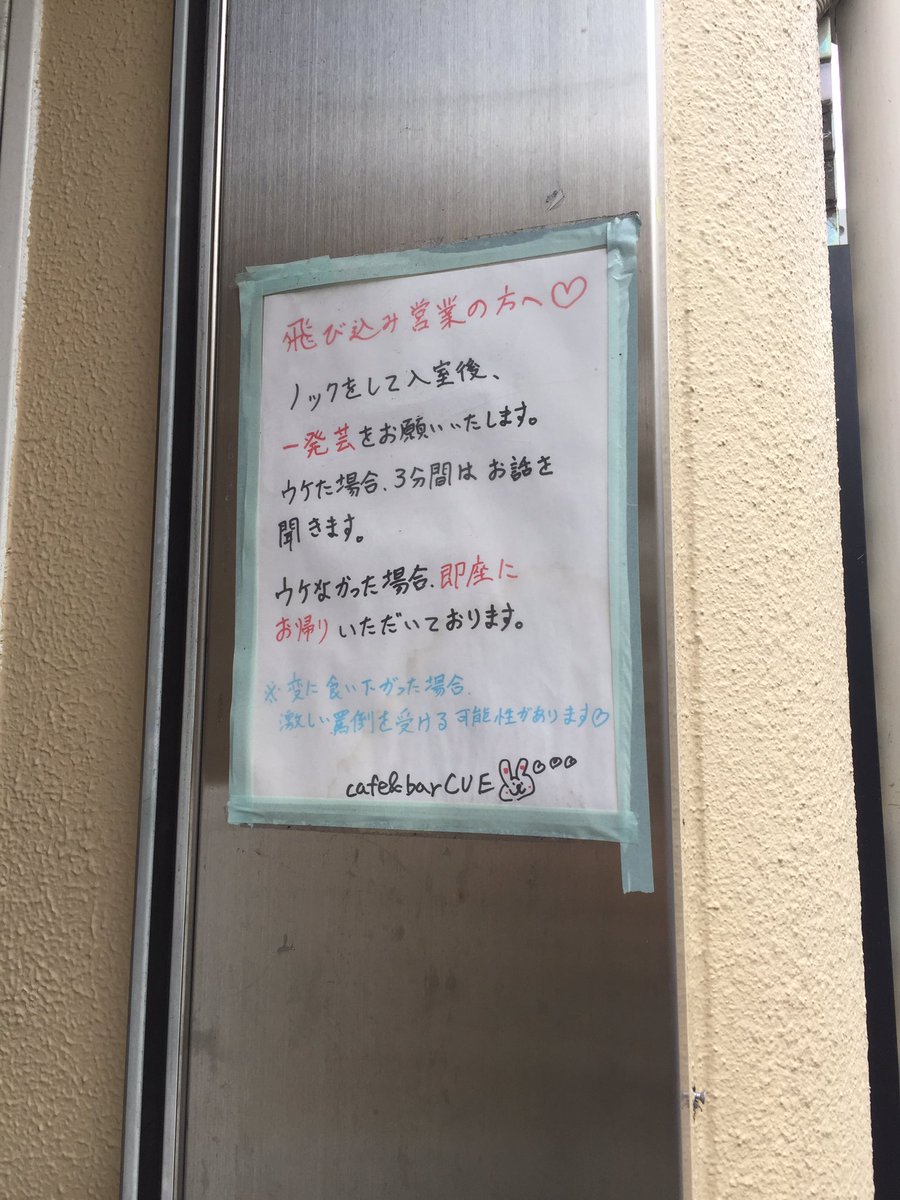 飛び込み営業の方へ♡
ノックをして入室後、
一発芸をお願いいたします。
ウケた場合、3分間はお話を
聞きます。
ウケなかった場合、即座に
お帰りいただいております。
※変に食い下がった場合、
激しい罵倒を受ける可能性があります♡
cafe&bar CUE